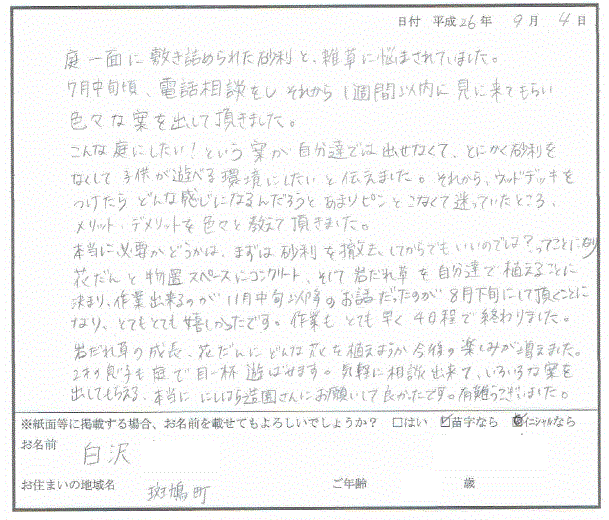 日付 平成26年 9月 4日
庭一面に敷き詰められた砂利と、雑草に悩まされていました。
7月中旬頃、電話相談をし それから1週間以内に見に来てもらい
色々な案を出して頂きました。
こんな庭にしたい！という案が自分達では出せなくて、とにかく砂利を
なくして子供が遊べる環境にしたいと伝えました。それから、ウッドデッキを
つけたらどんな感じになるんだろうとあまりピンとこなくて迷っていたところ、
メリット・デメリットを色々と教えて頂きました。
本当に必要かどうかは、まずは砂利を撤去してからでもいいのでは？ってことになり
花だんと物置スペースにコンクリート、そして岩だれ草を自分達で植えることに
決まり、作業出来るのが11月中旬以降のお話だったのが8月下旬にして頂くことに
なり、とてもとても嬉しかったです。作業もとても早く4日程で終わりました。
岩だれ草の成長、花だんにどんな花を植えようか今後の楽しみが増えました。
2才の息子も庭で目一杯遊ばせます。気軽に相談出来て、いろいろな案を
出してもらえる、本当ににしはら造園さんにお願いして良かったです。有難うございました。
※紙面等に掲載する場合、お名前を載せてもよろしいでしょうか？ □はい ☑苗字なら ☑イニシャルなら
お名前
白沢
お住まいの地域名 斑鳩町 ご年齢 歳